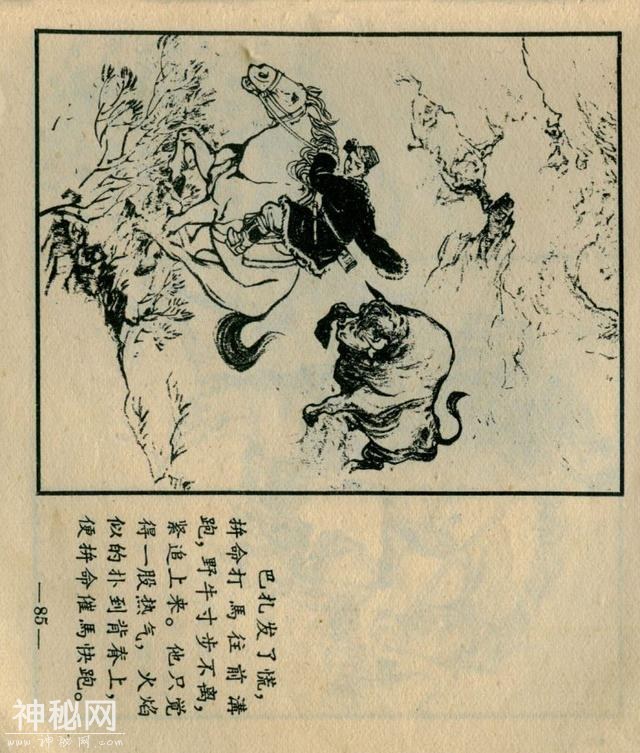 巴扎发了慌，
拚命打馬往前溝
跑，野牛寸步不离，
紧追上来。他只觉
得一股热气，火焰
似的扑到背脊上，
便拚命催馬快跑。
—85—
神秘网
www.神秘网.com